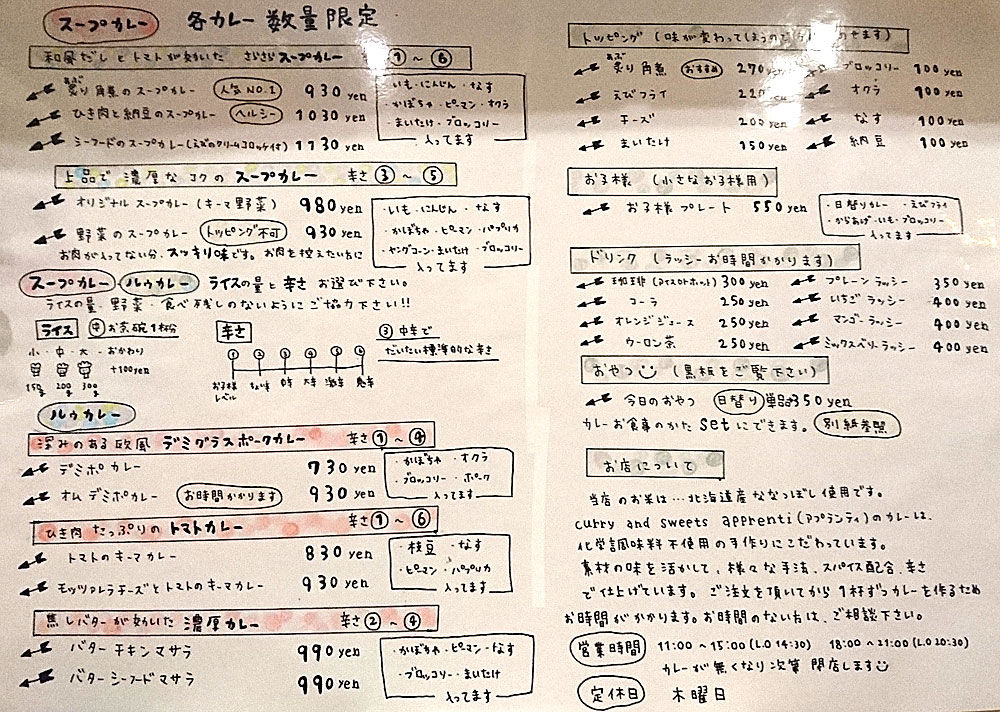 スープカレー 各カレー数量限定
和風だしとトマトが効いた さらさらスープカレー ①～⑥
炙り角煮のスープカレー 人気NO.1 930yen
ひき肉と納豆のスープカレー ヘルシー 1030yen
シーフードのスープカレー(えびのクリームコロッケ付) 1130yen
・いも・にんじん・なす
・かぼちゃ・ピーマン・オクラ
・まいたけ・ブロッコリー
入ってます
上品で濃厚なコクのスープカレー 辛さ③～⑤
オリジナルスープカレー(キーマ野菜) 980yen
野菜のスープカレー トッピング不可 930yen
お肉が入ってない分、スッキリ味です。お肉を控えたい方に
・いも・にんじん・なす
・かぼちゃ・ピーマン・パプリカ
・ヤングコーン・まいたけ・ブロッコリー
入ってます
スープカレー ルゥカレー ライスの量と辛さお選び下さい。
ライスの量・野菜・食べ残しのないようにご協力下さい!!
ライス 中お茶碗1杯分
小・中・大・おかわり
+100yen
150g 200g 300g
辛さ
① ② ③ ④ ⑤ ⑥
お子様レベル 中辛 大辛 激辛 鬼辛
③中辛で
だいたい標準的な辛さ
ルゥカレー
深みのある欧風デミグラスポークカレー 辛さ①～④
デミポカレー 730yen
オムデミポカレー お時間かかります 930yen
・かぼちゃ・オクラ
・ブロッコリー・ポーク
入ってます
ひき肉たっぷりのトマトカレー 辛さ①～⑥
トマトのキーマカレー 830yen
モッツァレラチーズとトマトのキーマカレー 930yen
・枝豆・なす
・ピーマン・パプリカ
入ってます
焦しバターが効いた濃厚カレー 辛さ②～④
バターチキンマサラ 990yen
バターシーフードマサラ 990yen
・かぼちゃ・ピーマン・なす
・ブロッコリー・まいたけ
入ってます
トッピング (味が変わってしまうので のせます)
炙り角煮 おすすめ 270yen
えびフライ
チーズ 200yen
まいたけ 150yen
ブロッコリー 100yen
オクラ 100yen
なす 100yen
納豆 100yen
お子様 (小さなお子様用)
お子様プレート 550yen
・日替りカレー・えびフライ
・からあげ・いも・ブロッコリー
入ってます
ドリンク (ラッシーお時間かかります)
珈琲(アイスorホット) 300yen
コーラ 250yen
オレンジジュース 250yen
ウーロン茶 250yen
プレーンラッシー 350yen
いちごラッシー 400yen
マンゴーラッシー 400yen
ミックスベリーラッシー 400yen
おやつ (黒板をご覧下さい)
今日のおやつ 日替り 単品350yen
カレーお食事のかたsetにできます。 別紙参照
お店について
当店のお米は…北海道産ななつぼし使用です。
curry and sweets apprenti(アプランティ)のカレーは、
化学調味料不使用の手作りにこだわっています。
素材の味を活かして、様々な手法、スパイス配合、辛さ
で仕上げています。ご注文を頂いてから1杯ずつカレーを作るため
お時間がかかります。お時間のない方は、ご相談下さい。
営業時間 11:00～15:00(L.O 14:30) 18:00～21:00(L.O 20:30)
カレーが無くなり次第閉店します
定休日 木曜日